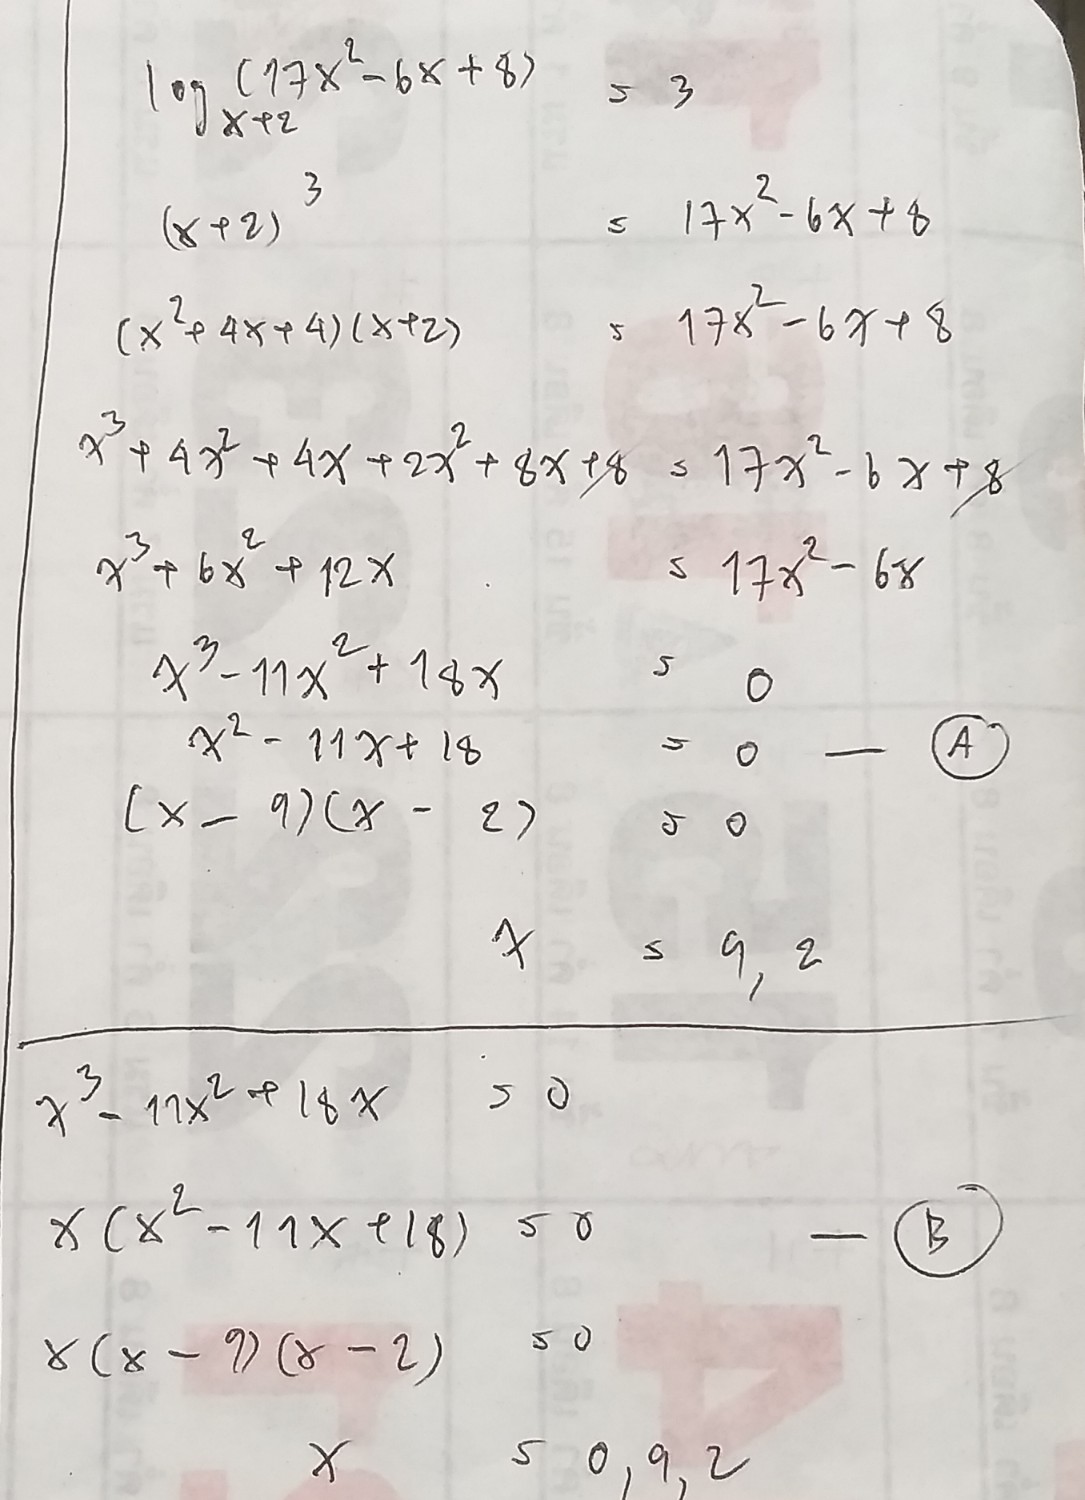 log_{x+2}(17x²-6x+8) = 3
(x+2)³ = 17x²-6x+8
(x²+4x+4)(x+2) = 17x²-6x+8
x³+4x²+4x+2x²+8x+8 = 17x²-6x+8
x³+6x²+12x = 17x²-6x
x³-11x²+18x = 0
x²-11x+18 = 0 — A
(x-9)(x-2) = 0
x = 9, 2
x³-11x²+18x = 0
x(x²-11x+18) = 0 — B
x(x-9)(x-2) = 0
x = 0, 9, 2